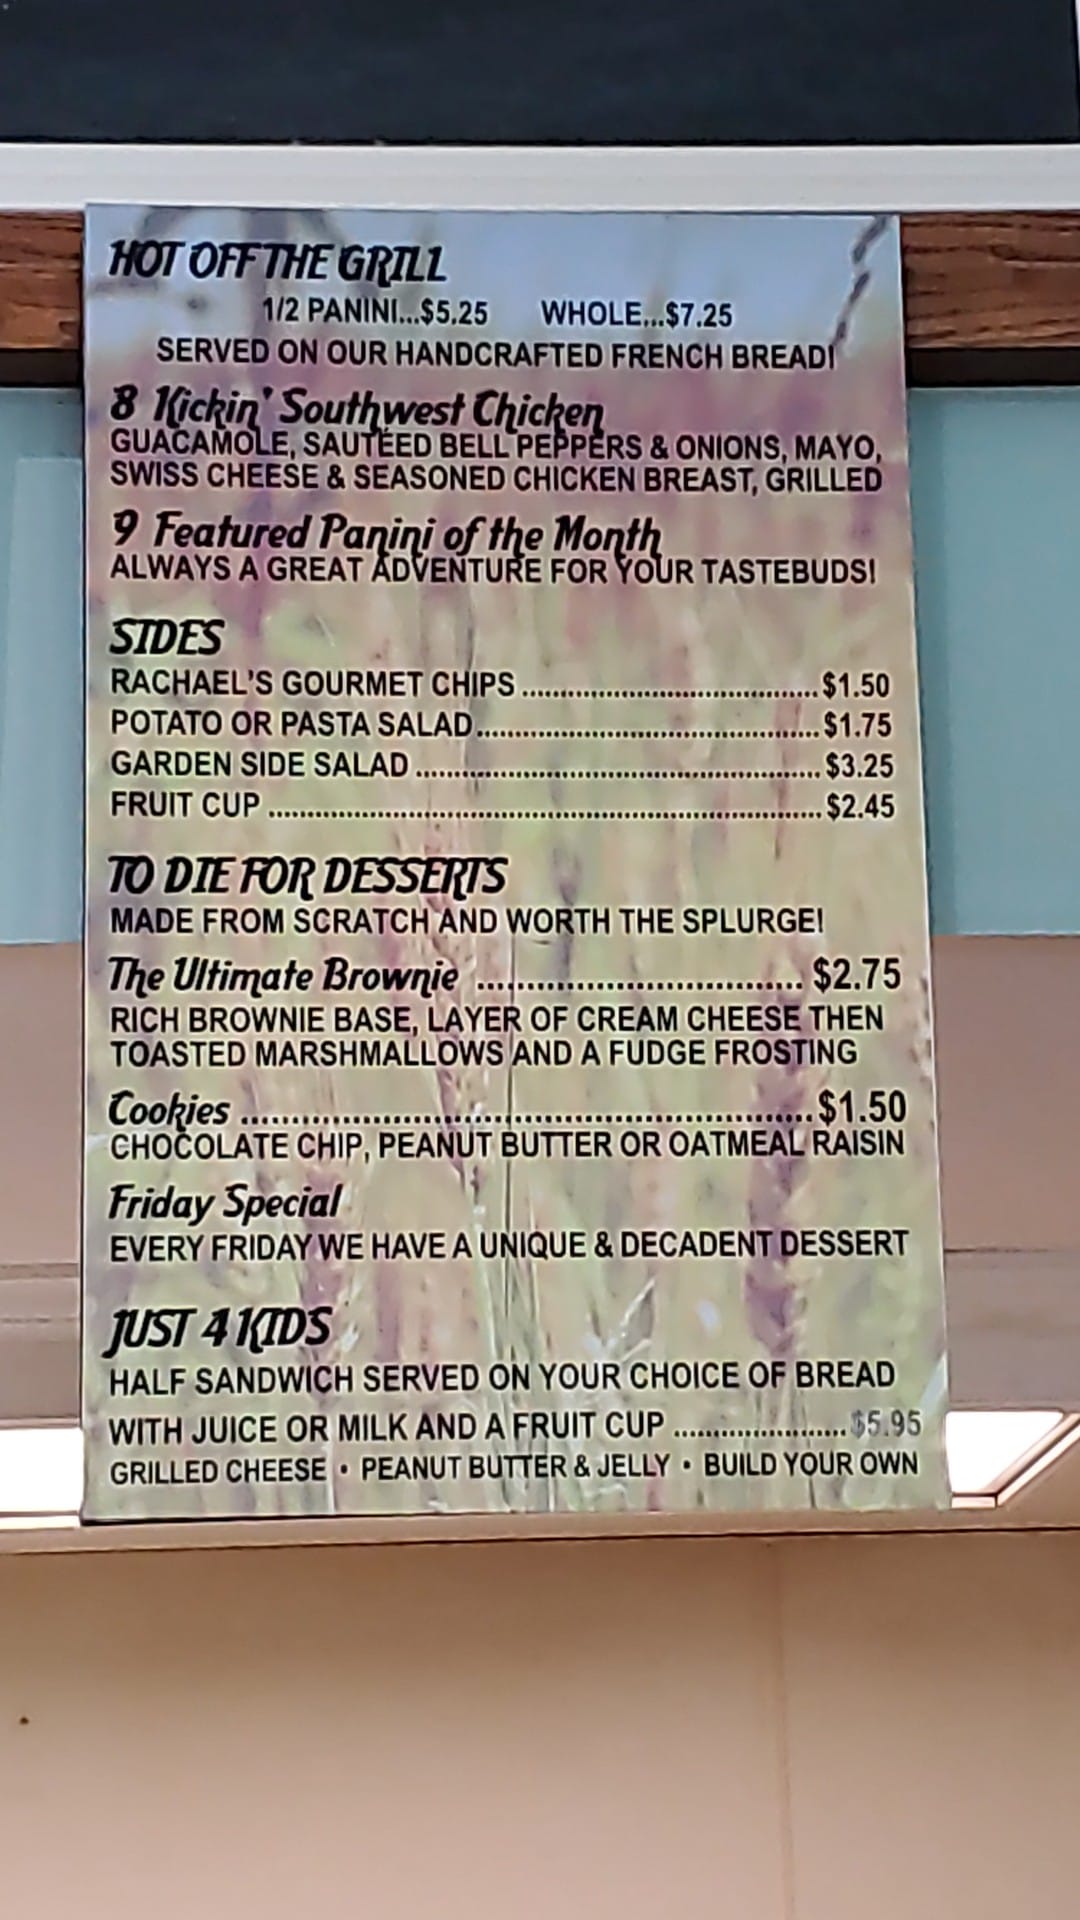 HOT OFF THE GRILL
1/2 PANINI...$5.25 WHOLE...$7.25
SERVED ON OUR HANDCRAFTED FRENCH BREAD!
8 Kickin' Southwest Chicken
GUACAMOLE, SAUTÉED BELL PEPPERS & ONIONS, MAYO,
SWISS CHEESE & SEASONED CHICKEN BREAST, GRILLED
9 Featured Panini of the Month
ALWAYS A GREAT ADVENTURE FOR YOUR TASTEBUDS!
SIDES
RACHAEL'S GOURMET CHIPS ........ $1.50
POTATO OR PASTA SALAD ........ $1.75
GARDEN SIDE SALAD ........ $3.25
FRUIT CUP ........ $2.45
TO DIE FOR DESSERTS
MADE FROM SCRATCH AND WORTH THE SPLURGE!
The Ultimate Brownie ........ $2.75
RICH BROWNIE BASE, LAYER OF CREAM CHEESE THEN
TOASTED MARSHMALLOWS AND A FUDGE FROSTING
Cookies ........ $1.50
CHOCOLATE CHIP, PEANUT BUTTER OR OATMEAL RAISIN
Friday Special
EVERY FRIDAY WE HAVE A UNIQUE & DECADENT DESSERT
JUST 4 KIDS
HALF SANDWICH SERVED ON YOUR CHOICE OF BREAD
WITH JUICE OR MILK AND A FRUIT CUP ........ $5.95
GRILLED CHEESE • PEANUT BUTTER & JELLY • BUILD YOUR OWN